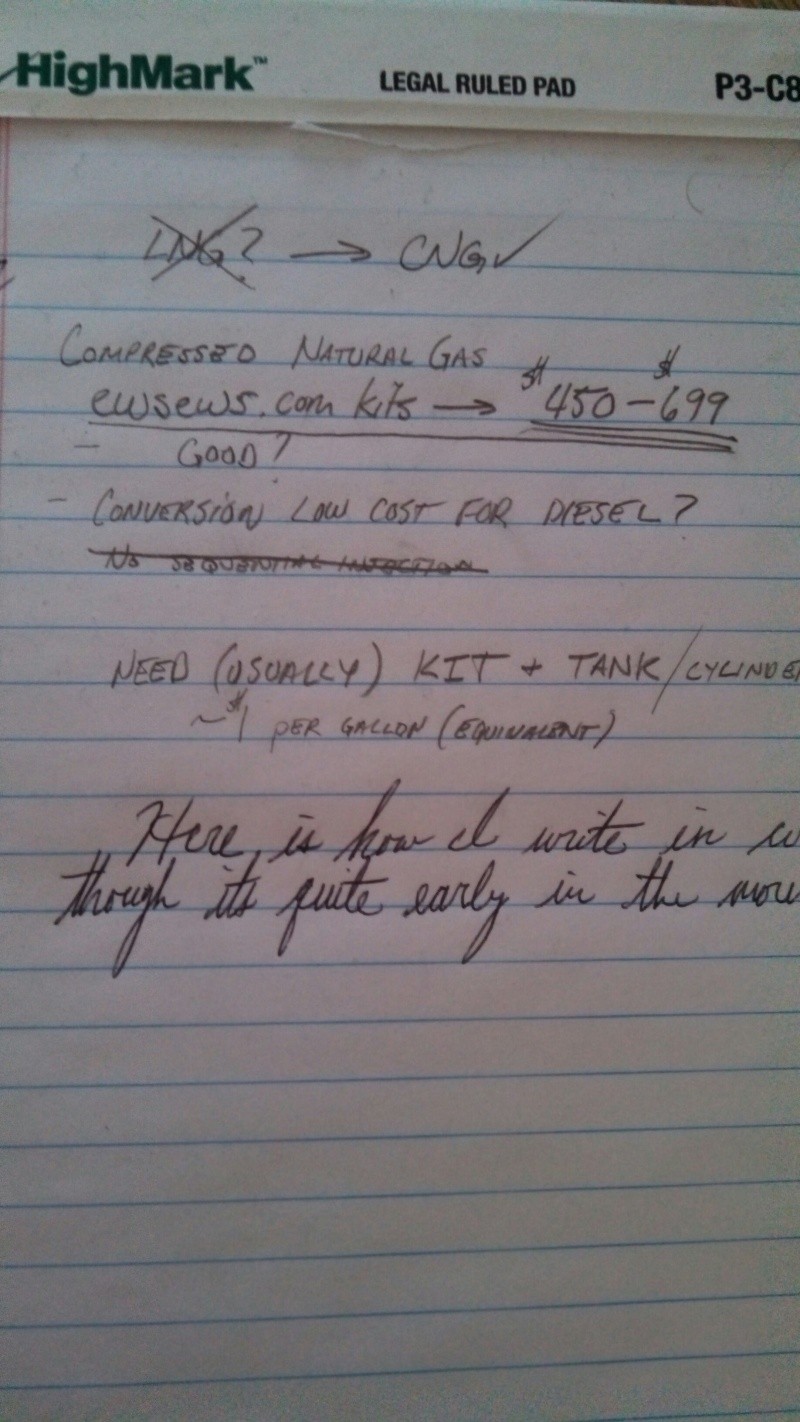 HighMark™ LEGAL RULED PAD P3-C8
LNG? → CNG✓
COMPRESSED NATURAL GAS
ewsews.com kits → $450-$699
- GOOD?
- CONVERSION LOW COST FOR DIESEL?
NO SEQUENTIAL INJECTION
NEED (USUALLY) KIT + TANK/CYLINDER
~$1 PER GALLON (EQUIVALENT)
Here, is how I write in
though its quite early in the